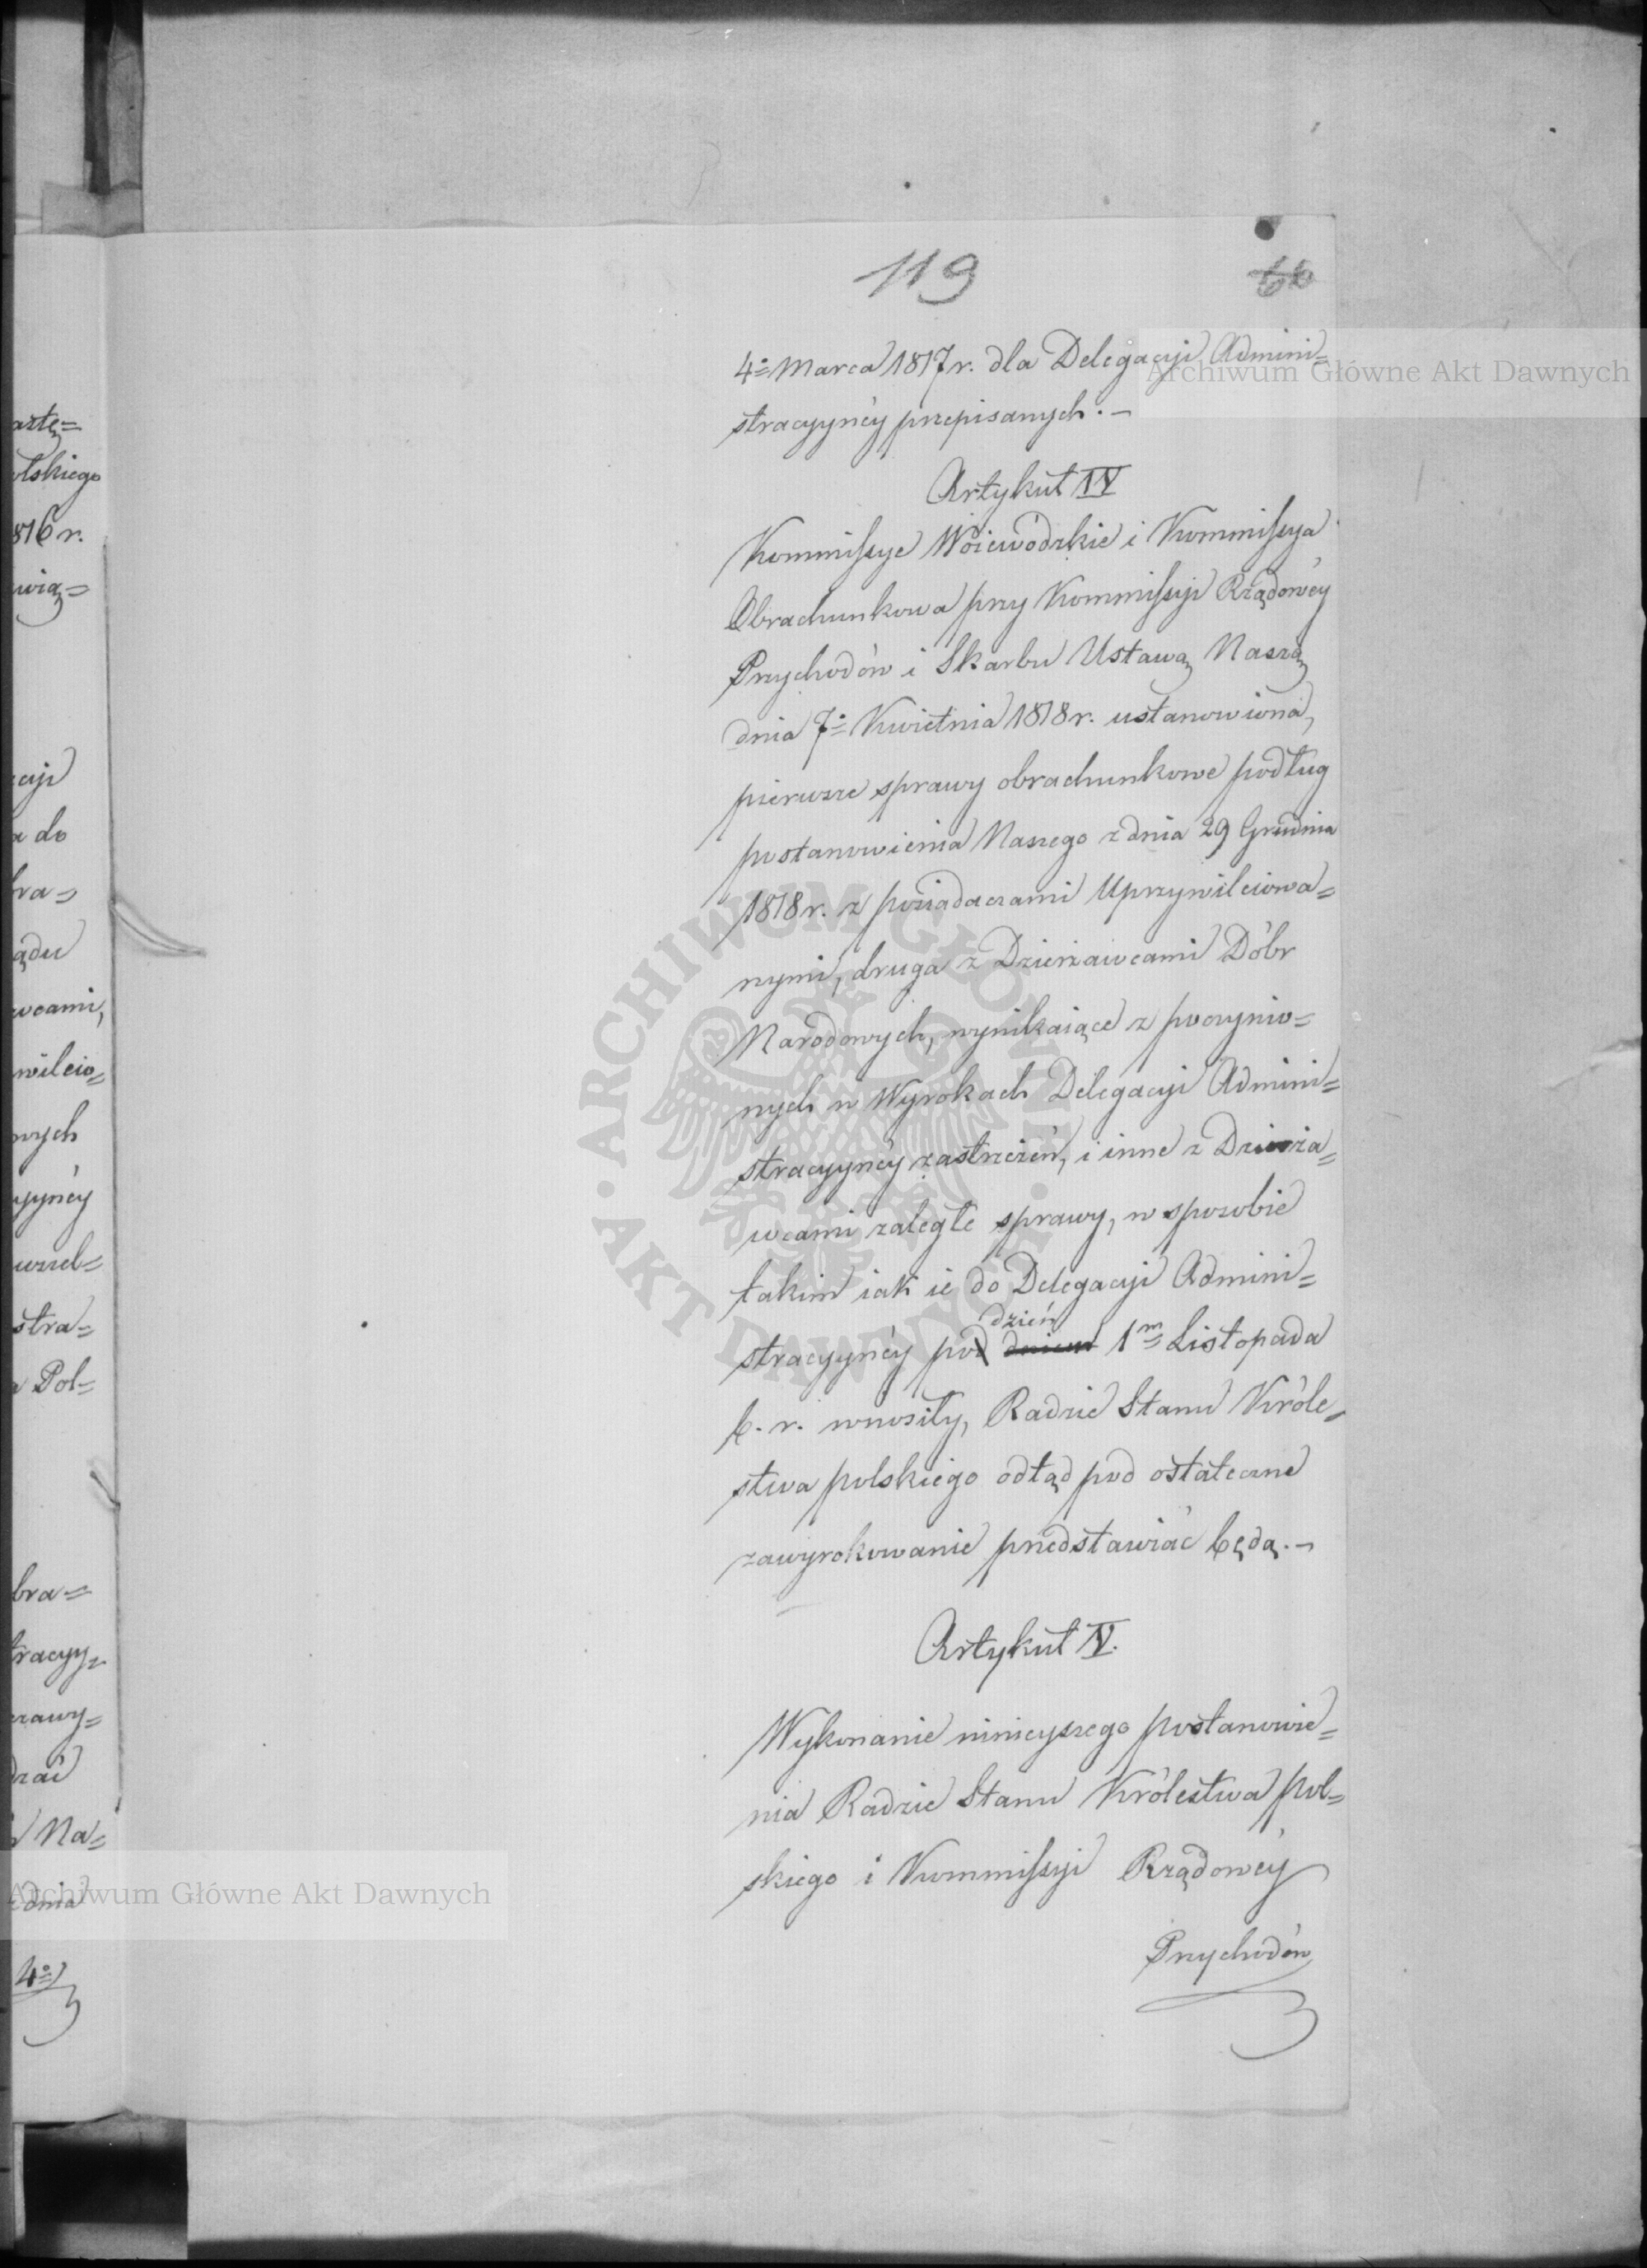 119
66
4º Marca 1817 r. dla Delegacyi Admini=
stracyynéy przepisanych. —
Artykuł IV
Kommissye Woiewódzkie i Kommissya
Obrachunkowa przy Kommissyi Rządowéy
Przychodów i Skarbu Ustawą Naszą
dnia 7º Kwietnia 1818 r. ustanowiona,
pierwsze sprawy obrachunkowe podług
postanowienia Naszego z dnia 29 Grudnia
1818 r. z posiadaczami Uprzywileiowa=
nymi, druga z Dzierżawcami Dóbr
Narodowych, wynikaiące z poczynio=
nych w Wyrokach Delegacyi Admini=
stracyynéy zastrzeżeń, i inne z Dzierża=
wcami zaległe sprawy, w sposobie
takim iak ie do Delegacyi Admini=
dzień
stracyynéy pod dniem 1m Listopada
b. r. wnosiły, Radzie Stanu Króle=
stwa polskiego odtąd pod ostateczne
zawyrokowanie przedstawiać będą. —
Artykuł V.
Wykonanie ninieyszego postanowie=
nia Radzie Stanu Królestwa pol=
skiego i Kommissyi Rządowéy
Przychodów
artę=
olskiego
816 r.
wią=
cyi
a do
bra=
ądu
wcami,
wileio=
nych
yynéy
wszel=
stra=
a Pol=
bra=
tracyy=
zawy=
dzać
Na=
z dnia
4º
Archiwum Główne Akt Dawnych
Archiwum Główne Akt Dawnych
ARCHIWUM GŁÓWNE · AKT DAWNYCH ·